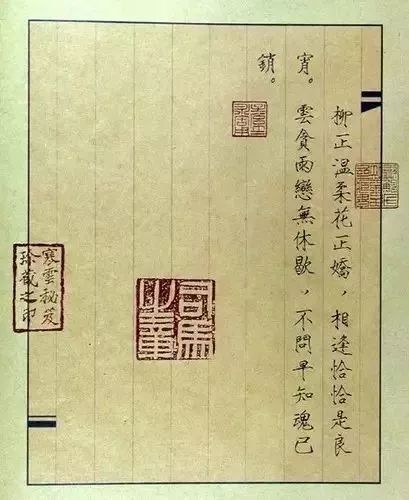 柳正温柔花正嬌，相逢恰恰是良
宵。雲貪雨戀無休歇，不問早知魂已
銷。
寒雲秘笈
珍藏之印